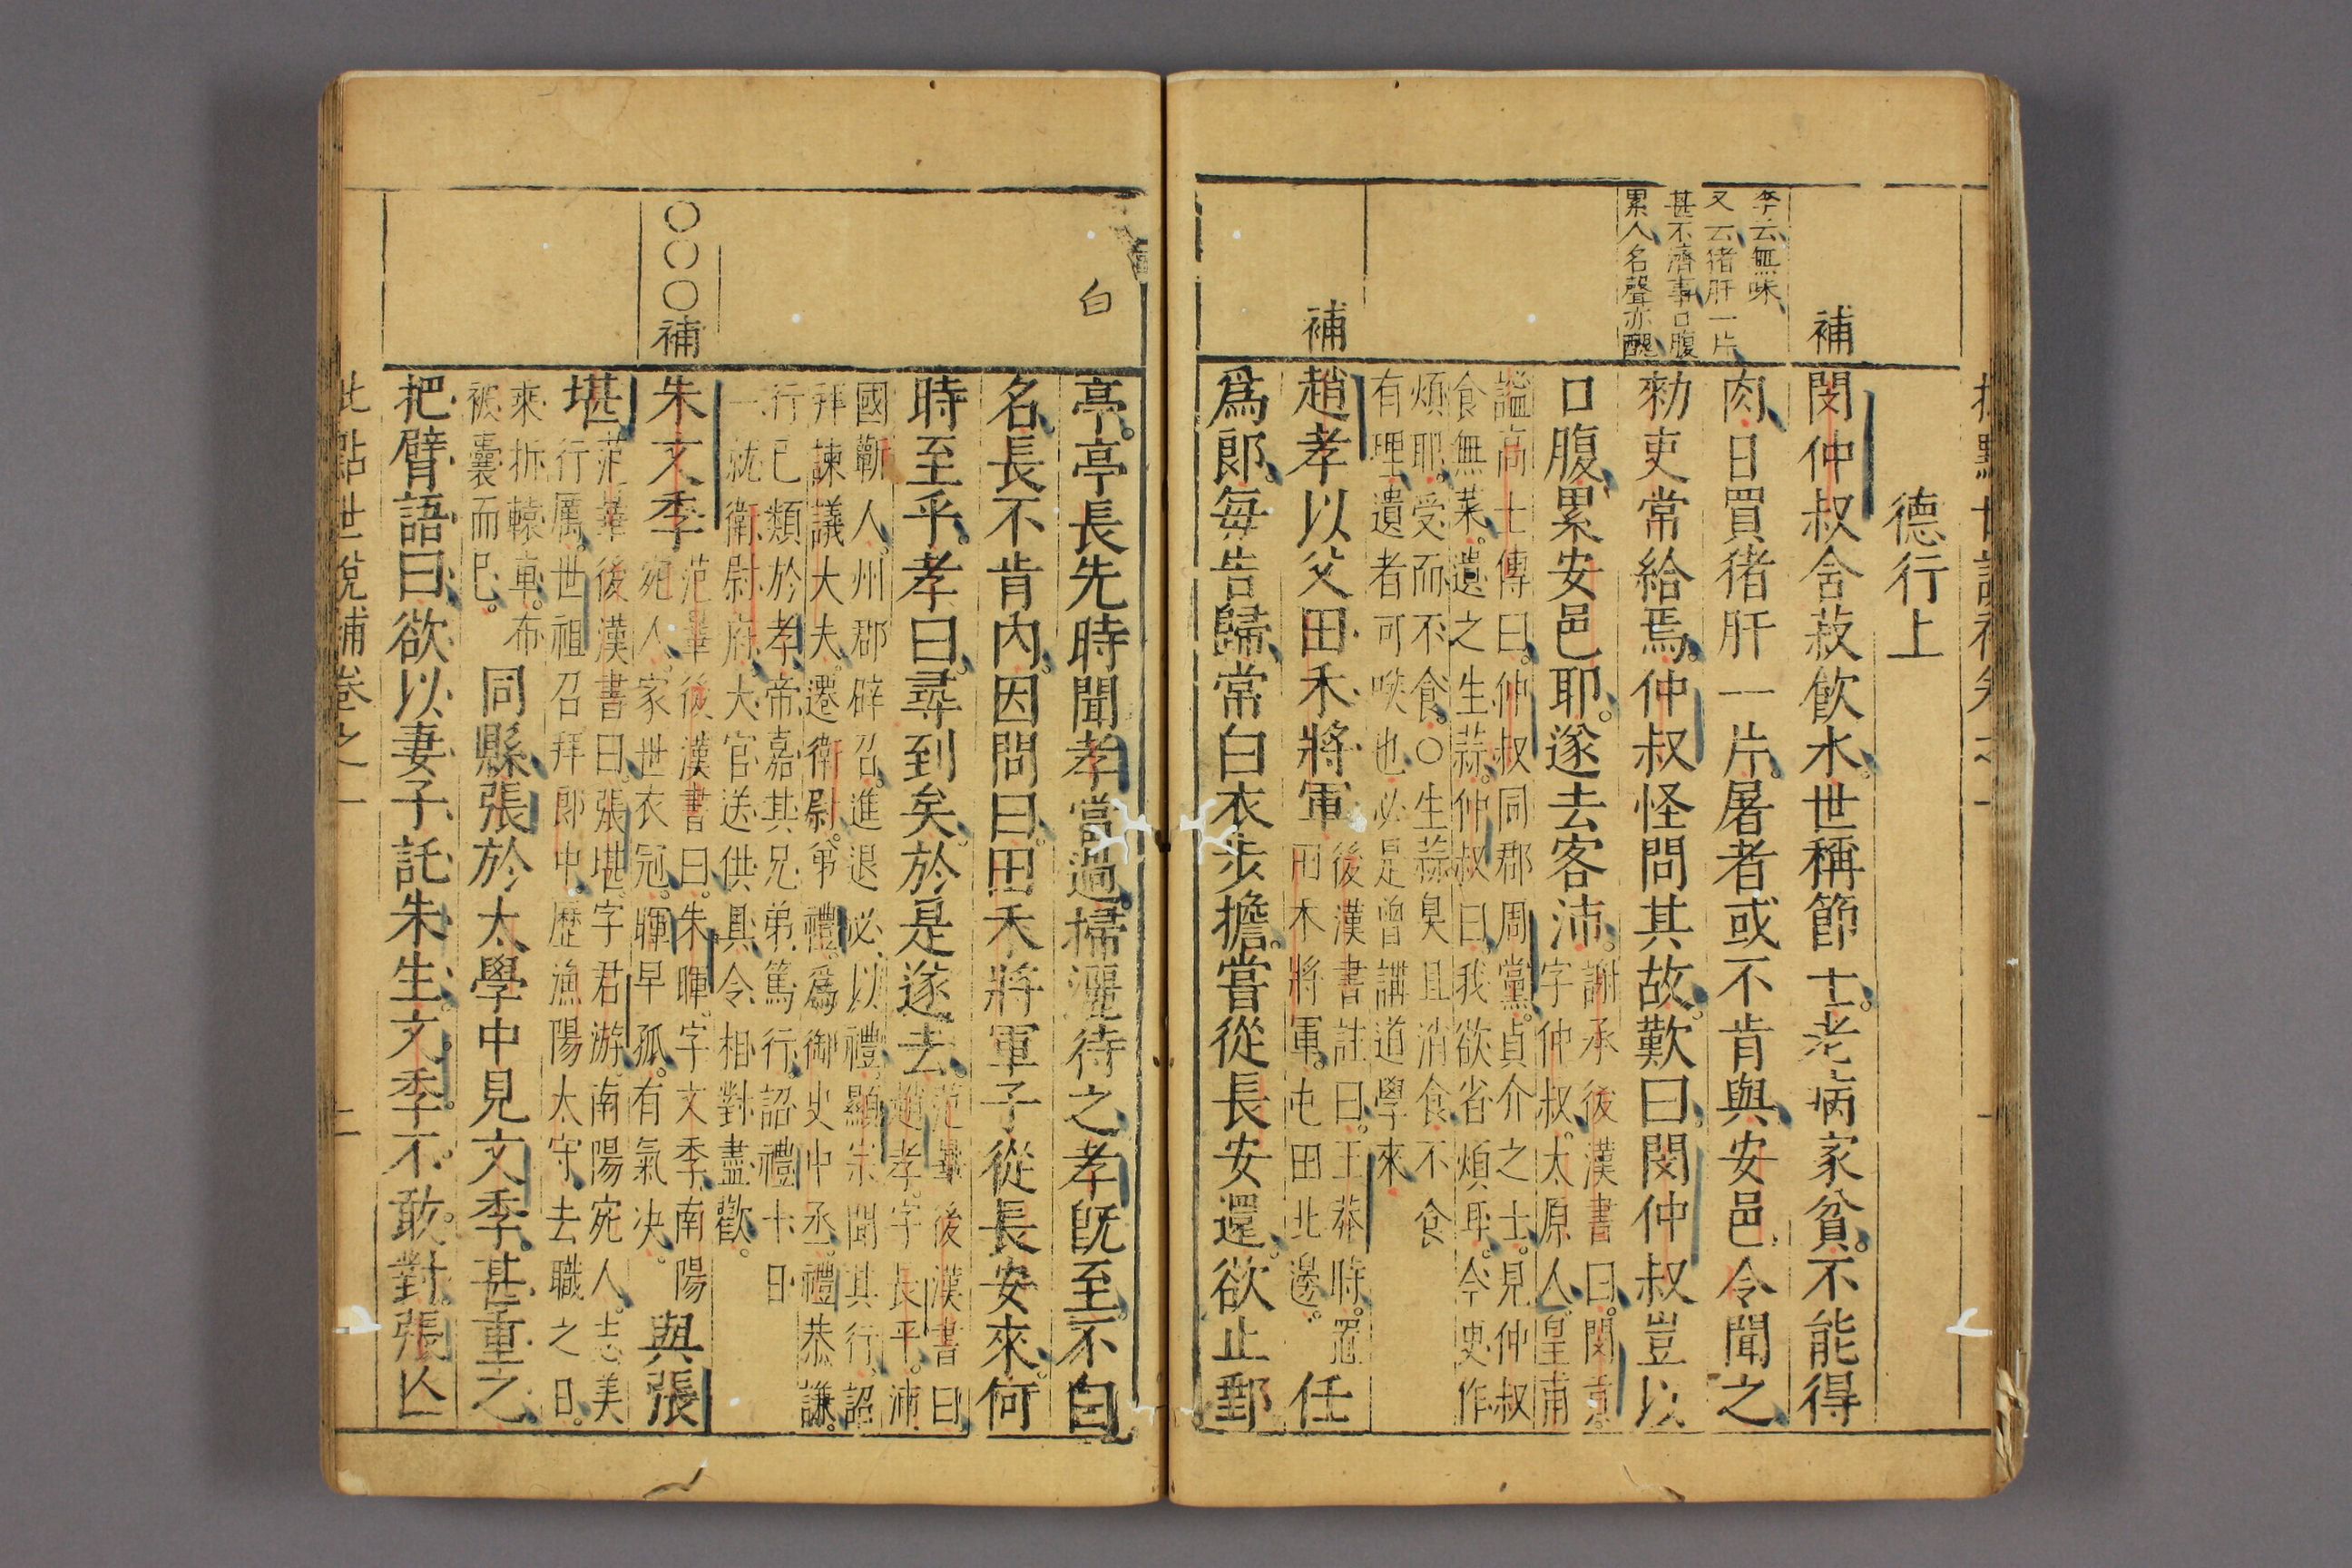 德行上
補
閔仲叔舍菽飲水。世稱節士。老病家貧。不能得
肉、日買猪肝一片。屠者或不肯與、安邑令聞之、
李云無味、
又云猪肝一片
甚不濟事口腹
累人名聲亦醜
勑吏常給焉。仲叔怪問其故。歎曰。閔仲叔豈以
口腹累安邑耶。遂去客沛。
謝承後漢書曰。閔貢。
字仲叔。太原人。皇甫
謐高士傳曰。仲叔同郡周黨。貞介之士。見仲叔
食無菜。遺之生蒜。仲叔曰。我欲省煩耳。今更作
煩耶。受而不食。○生蒜臭且消食不食
有理、遺者可啖也、必是曾講道學來
補
趙孝以父田禾將軍
後漢書註曰。王莽時。置
田禾將軍。屯田北邊。
任
爲郎、每告歸、常白衣步擔。嘗從長安還、欲止郵
亭。亭長先時聞孝當過、掃灑待之、孝既至。不自
白
名、長不肯內。因問曰。田禾將軍子從長安來。何
時至乎、孝曰、尋到矣、於是遂去。
范曄後漢書曰、
趙孝。字長平。沛
國蘄人、州郡辟召。進退必以禮、顯宗聞其行、詔
拜諫議大夫。遷衛尉。弟禮、爲御史中丞。禮恭謙。
行己類於孝、帝嘉其兄弟篤行。詔禮十日
一就衛尉府、太官送供具、令相對盡歡。
○○○補
朱文季
范曄後漢書曰。朱暉。字文季、南陽
宛人、家世衣冠。暉早孤。有氣決。
與張
堪
范曄後漢書曰。張堪。字君游。南陽宛人。志美
行厲。世祖召拜郎中。歷漁陽太守、去職之日。
乘折轅車。布
被囊而已。
同縣、張於太學中見文季、甚重之、
把臂語曰、欲以妻子託朱生。文季不敢對。張亡
批點世說補卷之一